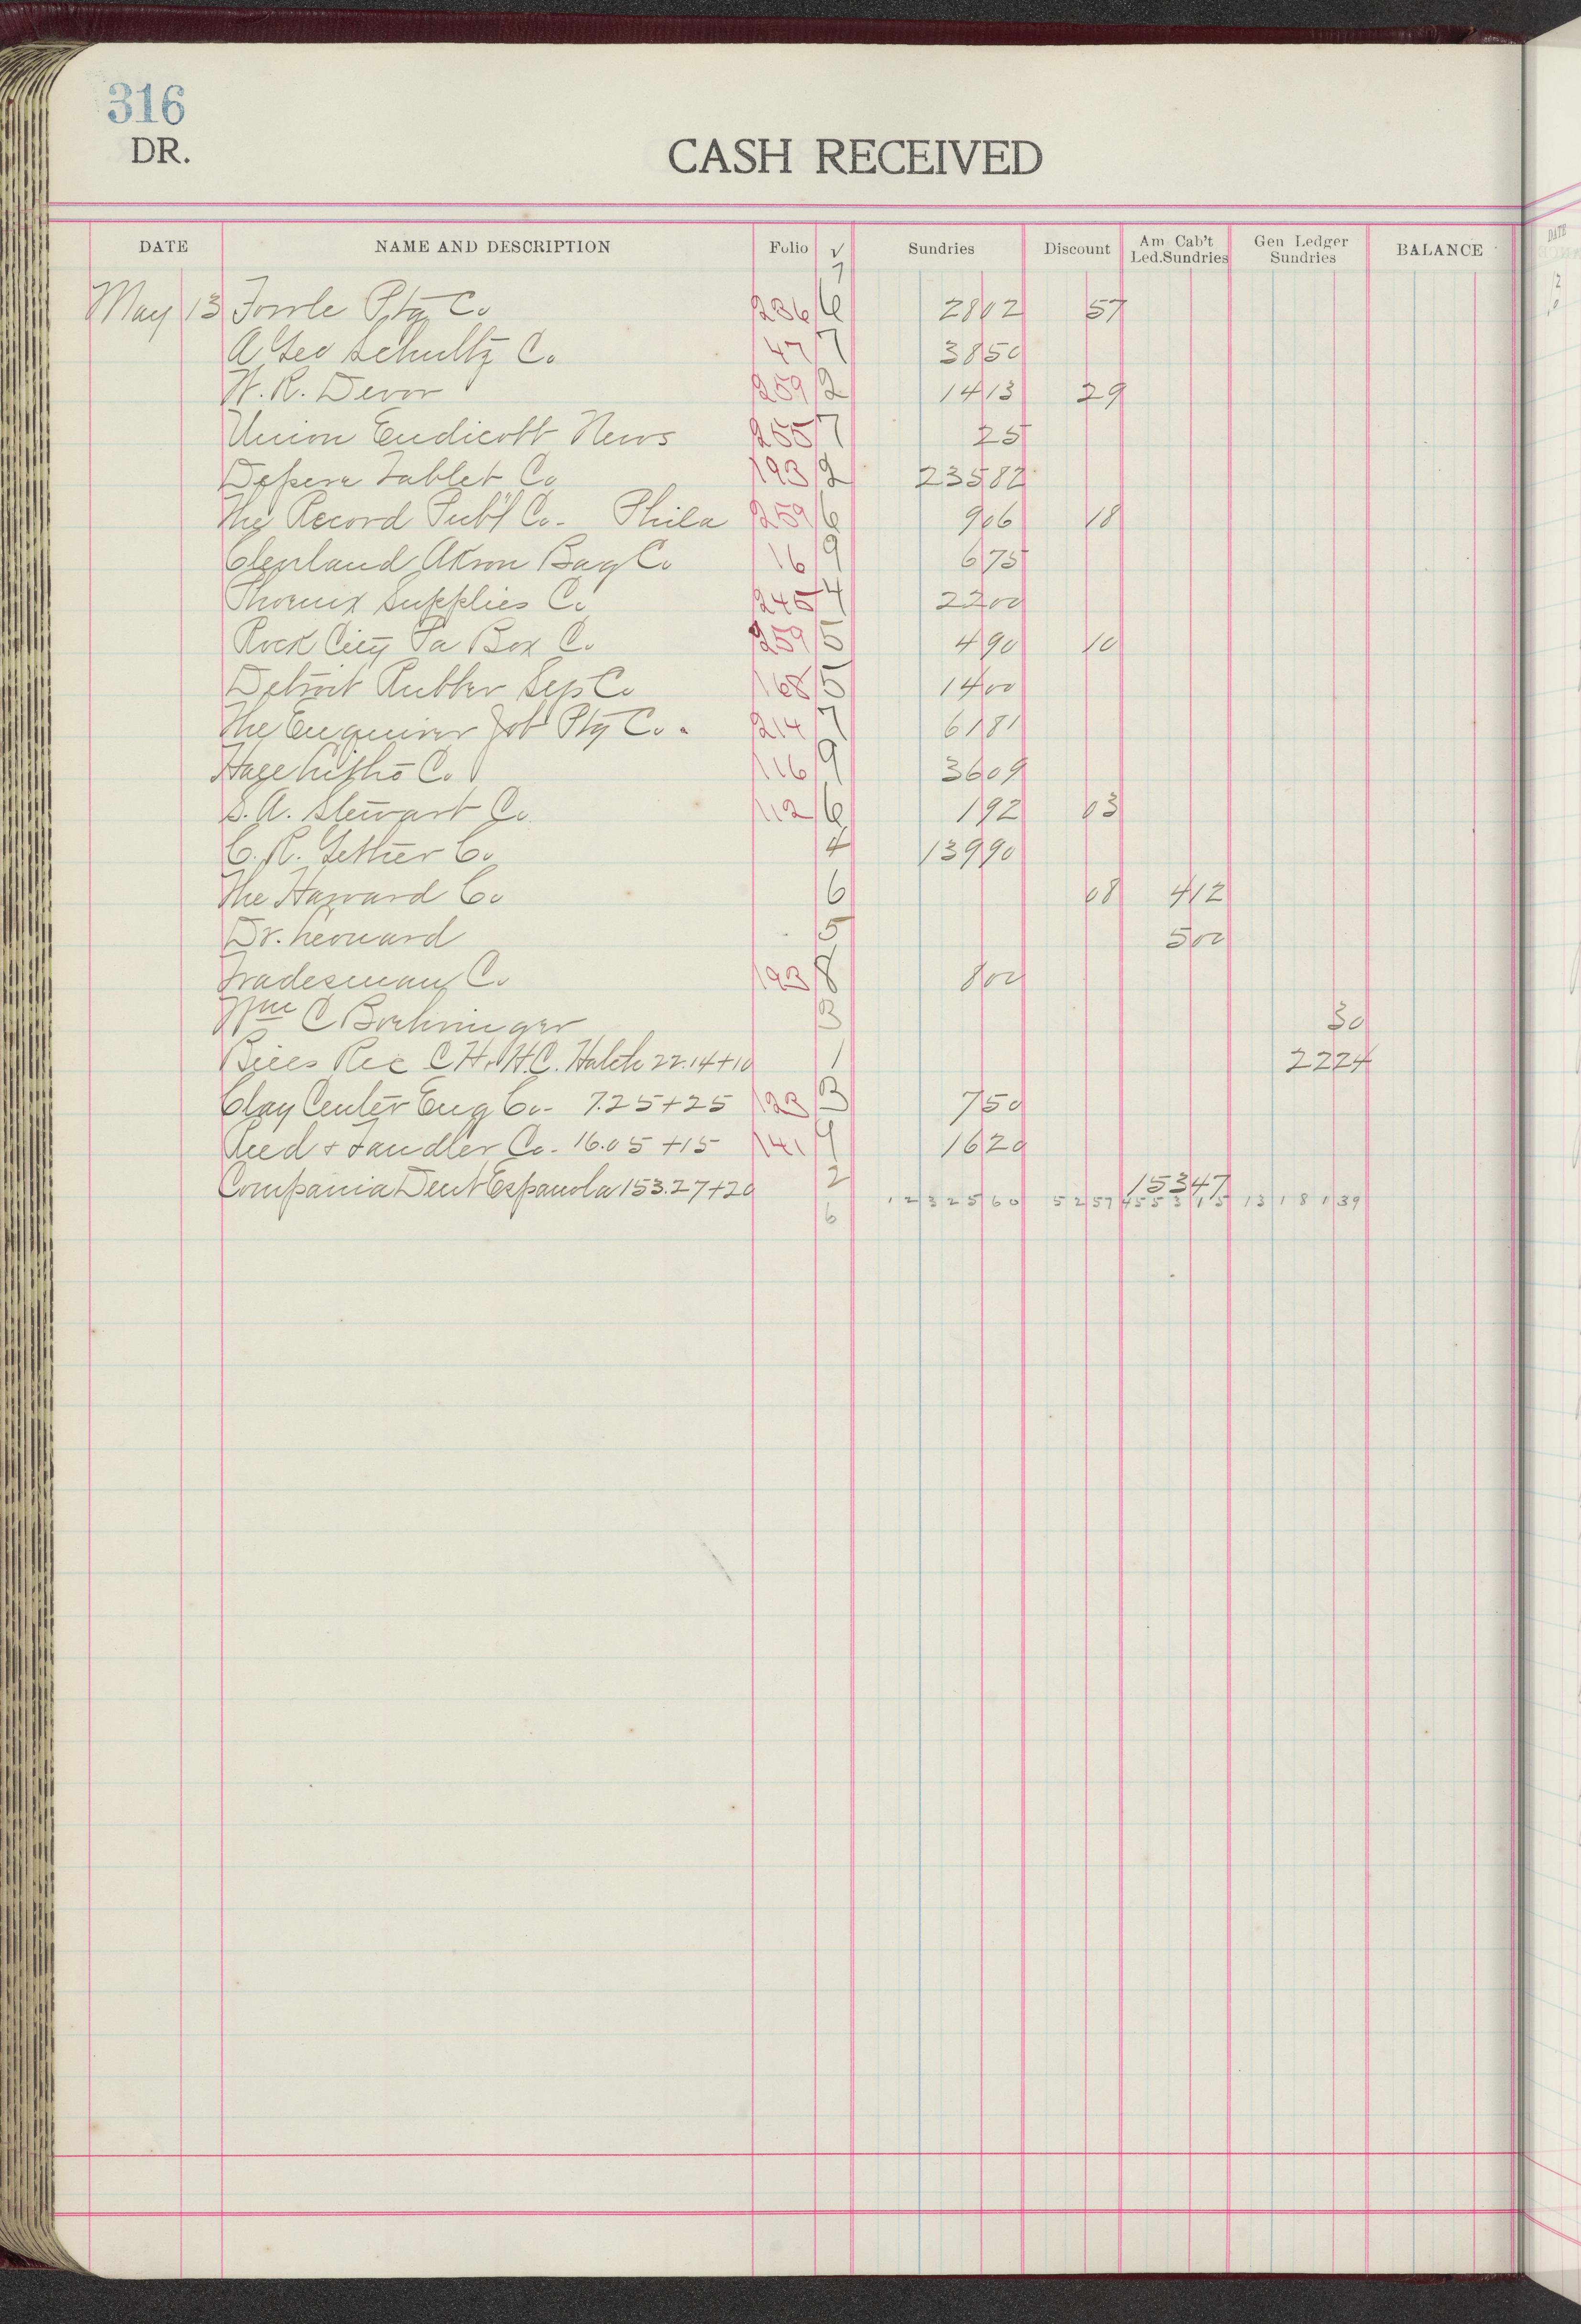 316
DR.
CASH RECEIVED
DATE NAME AND DESCRIPTION Folio √ Sundries Discount Am Cab't Led.Sundries Gen Ledger Sundries BALANCE
7
May 13 Fowle Ptg Co 236 6 28 02 57
A Geo Schultz Co. 47 7 38 50
W. R. Devor 259 2 14 13 29
Union Endicott News 255 7 25
Depere Tablet Co 193 2 235 82
The Record Pub'l Co - Phila 259 6 9 06 18
Clevland Akron Bag Co 16 9 6 75
Phoenix Supplies Co 245 4 22 00
Rock City Pa Box Co 259 5 4 90 10
Detroit Rubber Co 168 5 14 00
The Enquirer Job Ptg Co. 214 7 61 81
Hage Litho Co. 116 9 36 09
S. A. Stewart Co 112 6 1 92 03
C. R. Gether Co 4 139 90
The Harvard Co 6 08 4 12
Dr. Leonard 5 5 00
Tradesman Co. 193 8 8 00
Wm C Boehringer 3 30
Bills Rec C H. H.C. Hatch 22.14+10 1 22 24
Clay Center Eng Co - 7.25+25 123 3 7 50
Reed + Co - 16.05 +15 141 9 16 20
Compania Dent Espanola 153.27+20 2 153 47
6 12325 60 52 57 4553 15 13181 39